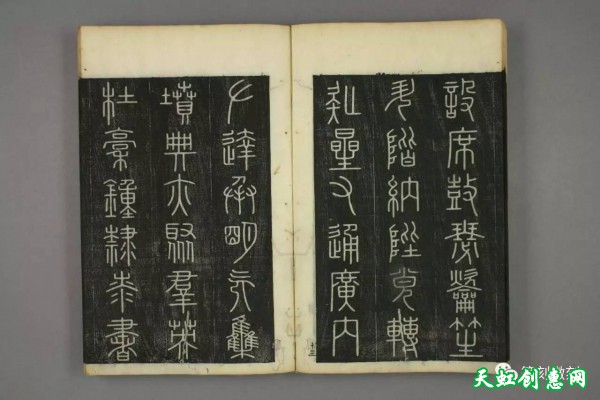 設席鼓瑟龡笙
升階納陛弁轉
疑星右通廣內
左達承明既集
墳典亦聚羣英
杜稾鐘隸桼書
天虹创惠网